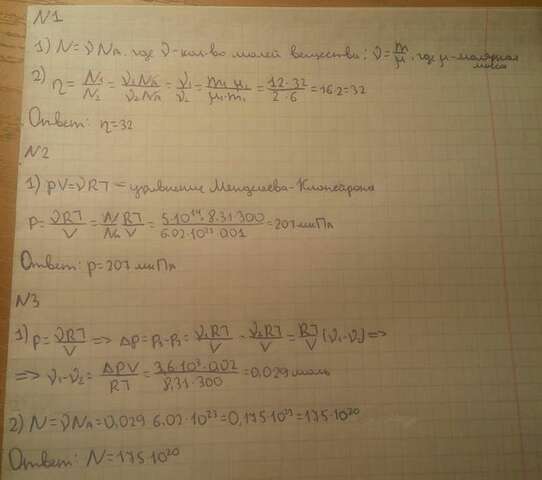 №1
1) N = ν Nₐ, где ν - кол-во молей вещества; ν = m/μ, где μ - молярная масса
2) η = N₁/N₂ = ν₁Nₐ/ν₂Nₐ = ν₁/ν₂ = m₁μ₂/μ₁·m₂ = 12·32/2·6 = 16·2 = 32
Ответ: η = 32
№2
1) pV = νRT – уравнение Менделеева-Клапейрона
P = νRT/V = N/Nₐ RT/V = 5·10¹⁴·8.31·300/6.02·10²³·0.01 = 207 мкПа
Ответ: p = 207 мкПа
№3
1) P = νRT/V => Δp = p₁-p₂ = ν₁RT/V - ν₂RT/V = RT/V (ν₁-ν₂) =>
=> ν₁-ν₂ = ΔPV/RT = 3,6·10³·0,02/8,31·300 = 0,029 моль
2) N = νNₐ = 0,029·6.02·10²³ = 0,175·10²³ = 175·10²⁰
Ответ: N = 175·10²⁰